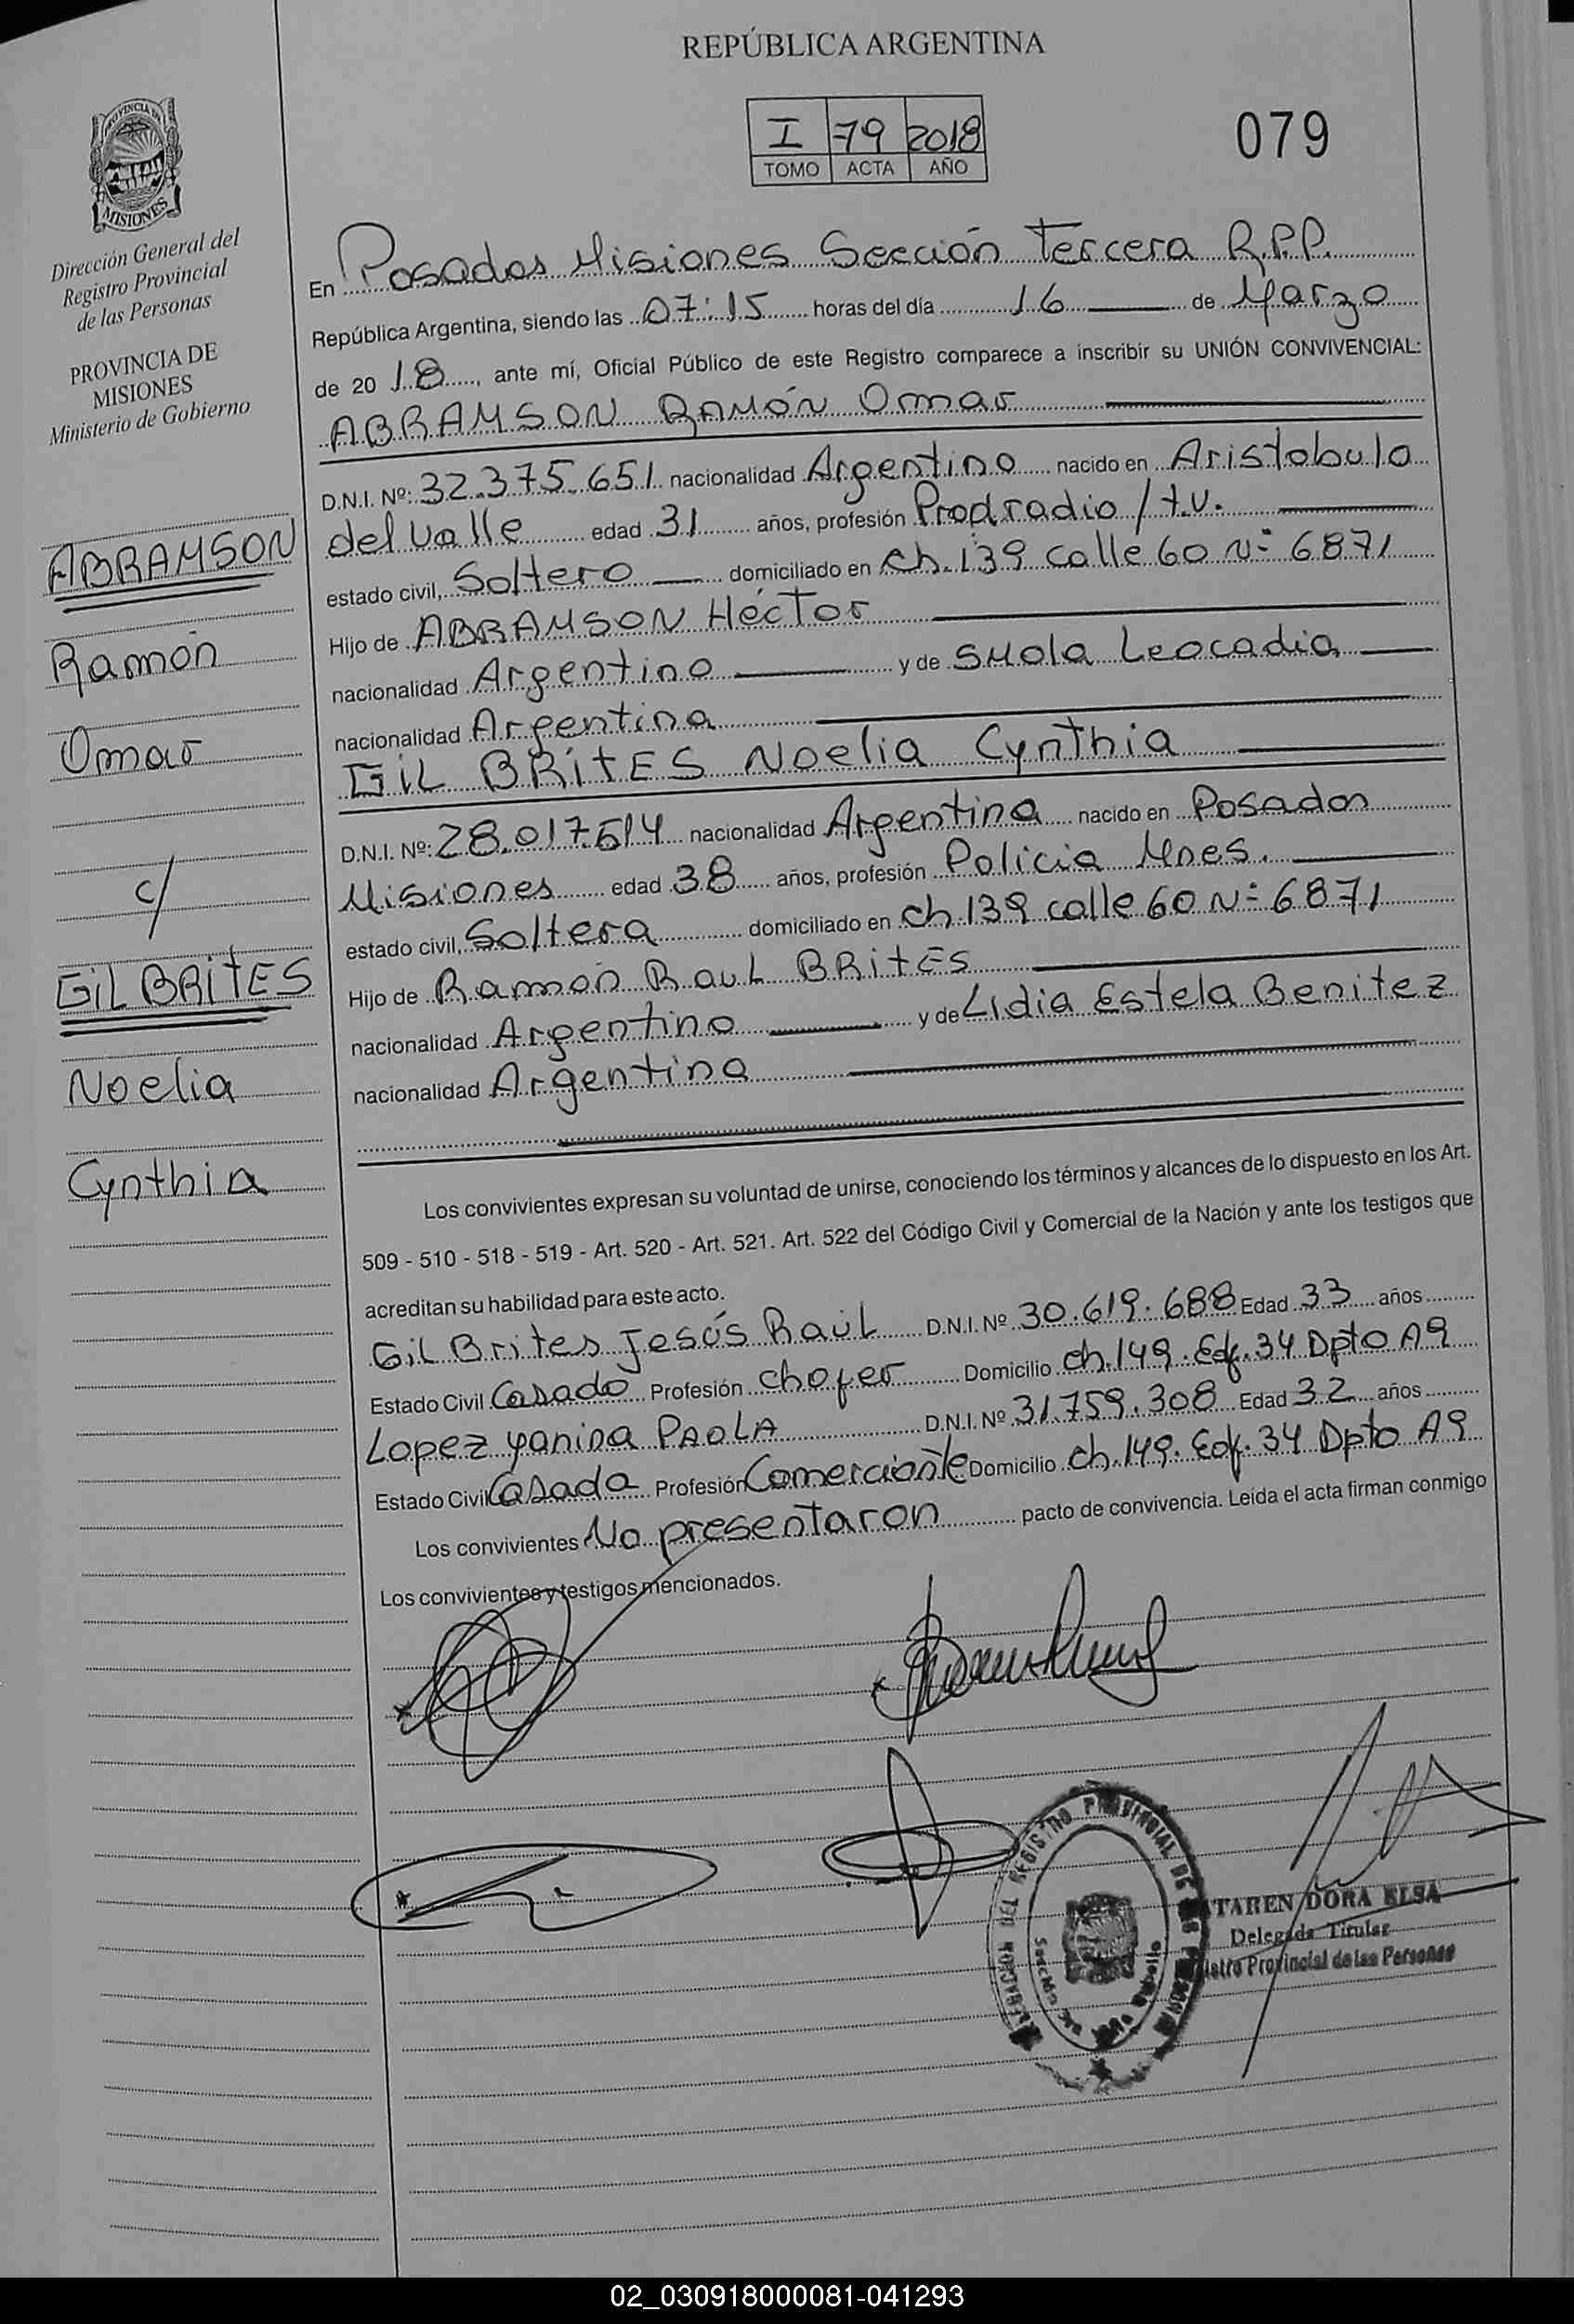 REPÚBLICA ARGENTINA
I 79 2018
TOMO ACTA AÑO
079
PROVINCIA DE
MISIONES
Dirección General del
Registro Provincial
de las Personas
PROVINCIA DE
MISIONES
Ministerio de Gobierno
ABRAMSON
Ramón
Omar
c/
GIL BRITES
Noelia
Cynthia
En Posadas Misiones Sección Tercera R.P.P.
República Argentina, siendo las 07:15 horas del día 16 de Marzo
de 2018, ante mí, Oficial Público de este Registro comparece a inscribir su UNIÓN CONVIVENCIAL:
ABRAMSON RAMÓN Omar
D.N.I. Nº: 32.375.651 nacionalidad Argentino nacido en Aristobulo
del Valle edad 31 años, profesión Prod radio / t.v.
estado civil, Soltero domiciliado en ch. 139 calle 60 Nº 6871
Hijo de ABRAMSON Héctor
nacionalidad Argentino y de SMola Leocadia
nacionalidad Argentina
GIL BRITES Noelia Cynthia
D.N.I. Nº: 28.017.514 nacionalidad Argentina nacido en Posadas
Misiones edad 38 años, profesión Policia Mnes.
estado civil, Soltera domiciliado en ch. 139 calle 60 Nº 6871
Hijo de Ramón Raul BRITES
nacionalidad Argentino y de Lidia Estela Benitez
nacionalidad Argentina
Los convivientes expresan su voluntad de unirse, conociendo los términos y alcances de lo dispuesto en los Art.
509 - 510 - 518 - 519 - Art. 520 - Art. 521. Art. 522 del Código Civil y Comercial de la Nación y ante los testigos que
acreditan su habilidad para este acto.
Gil Brites Jesús Raúl D.N.I. Nº 30.619.688 Edad 33 años
Estado Civil Casado Profesión chofer Domicilio ch. 149. Edf. 34 Dpto A9
Lopez Yanina PAOLA D.N.I. Nº 31.759.308 Edad 32 años
Estado Civil Casada Profesión Comerciante Domicilio ch. 149. Edf. 34 Dpto A9
Los convivientes No presentaron pacto de convivencia. Leída el acta firman conmigo
Los convivientes y testigos mencionados.
REGISTRO PROVINCIAL DE
TAREN DORA ELSA
Delegada Titular
istro Provincial de las Personas
02_030918000081-041293